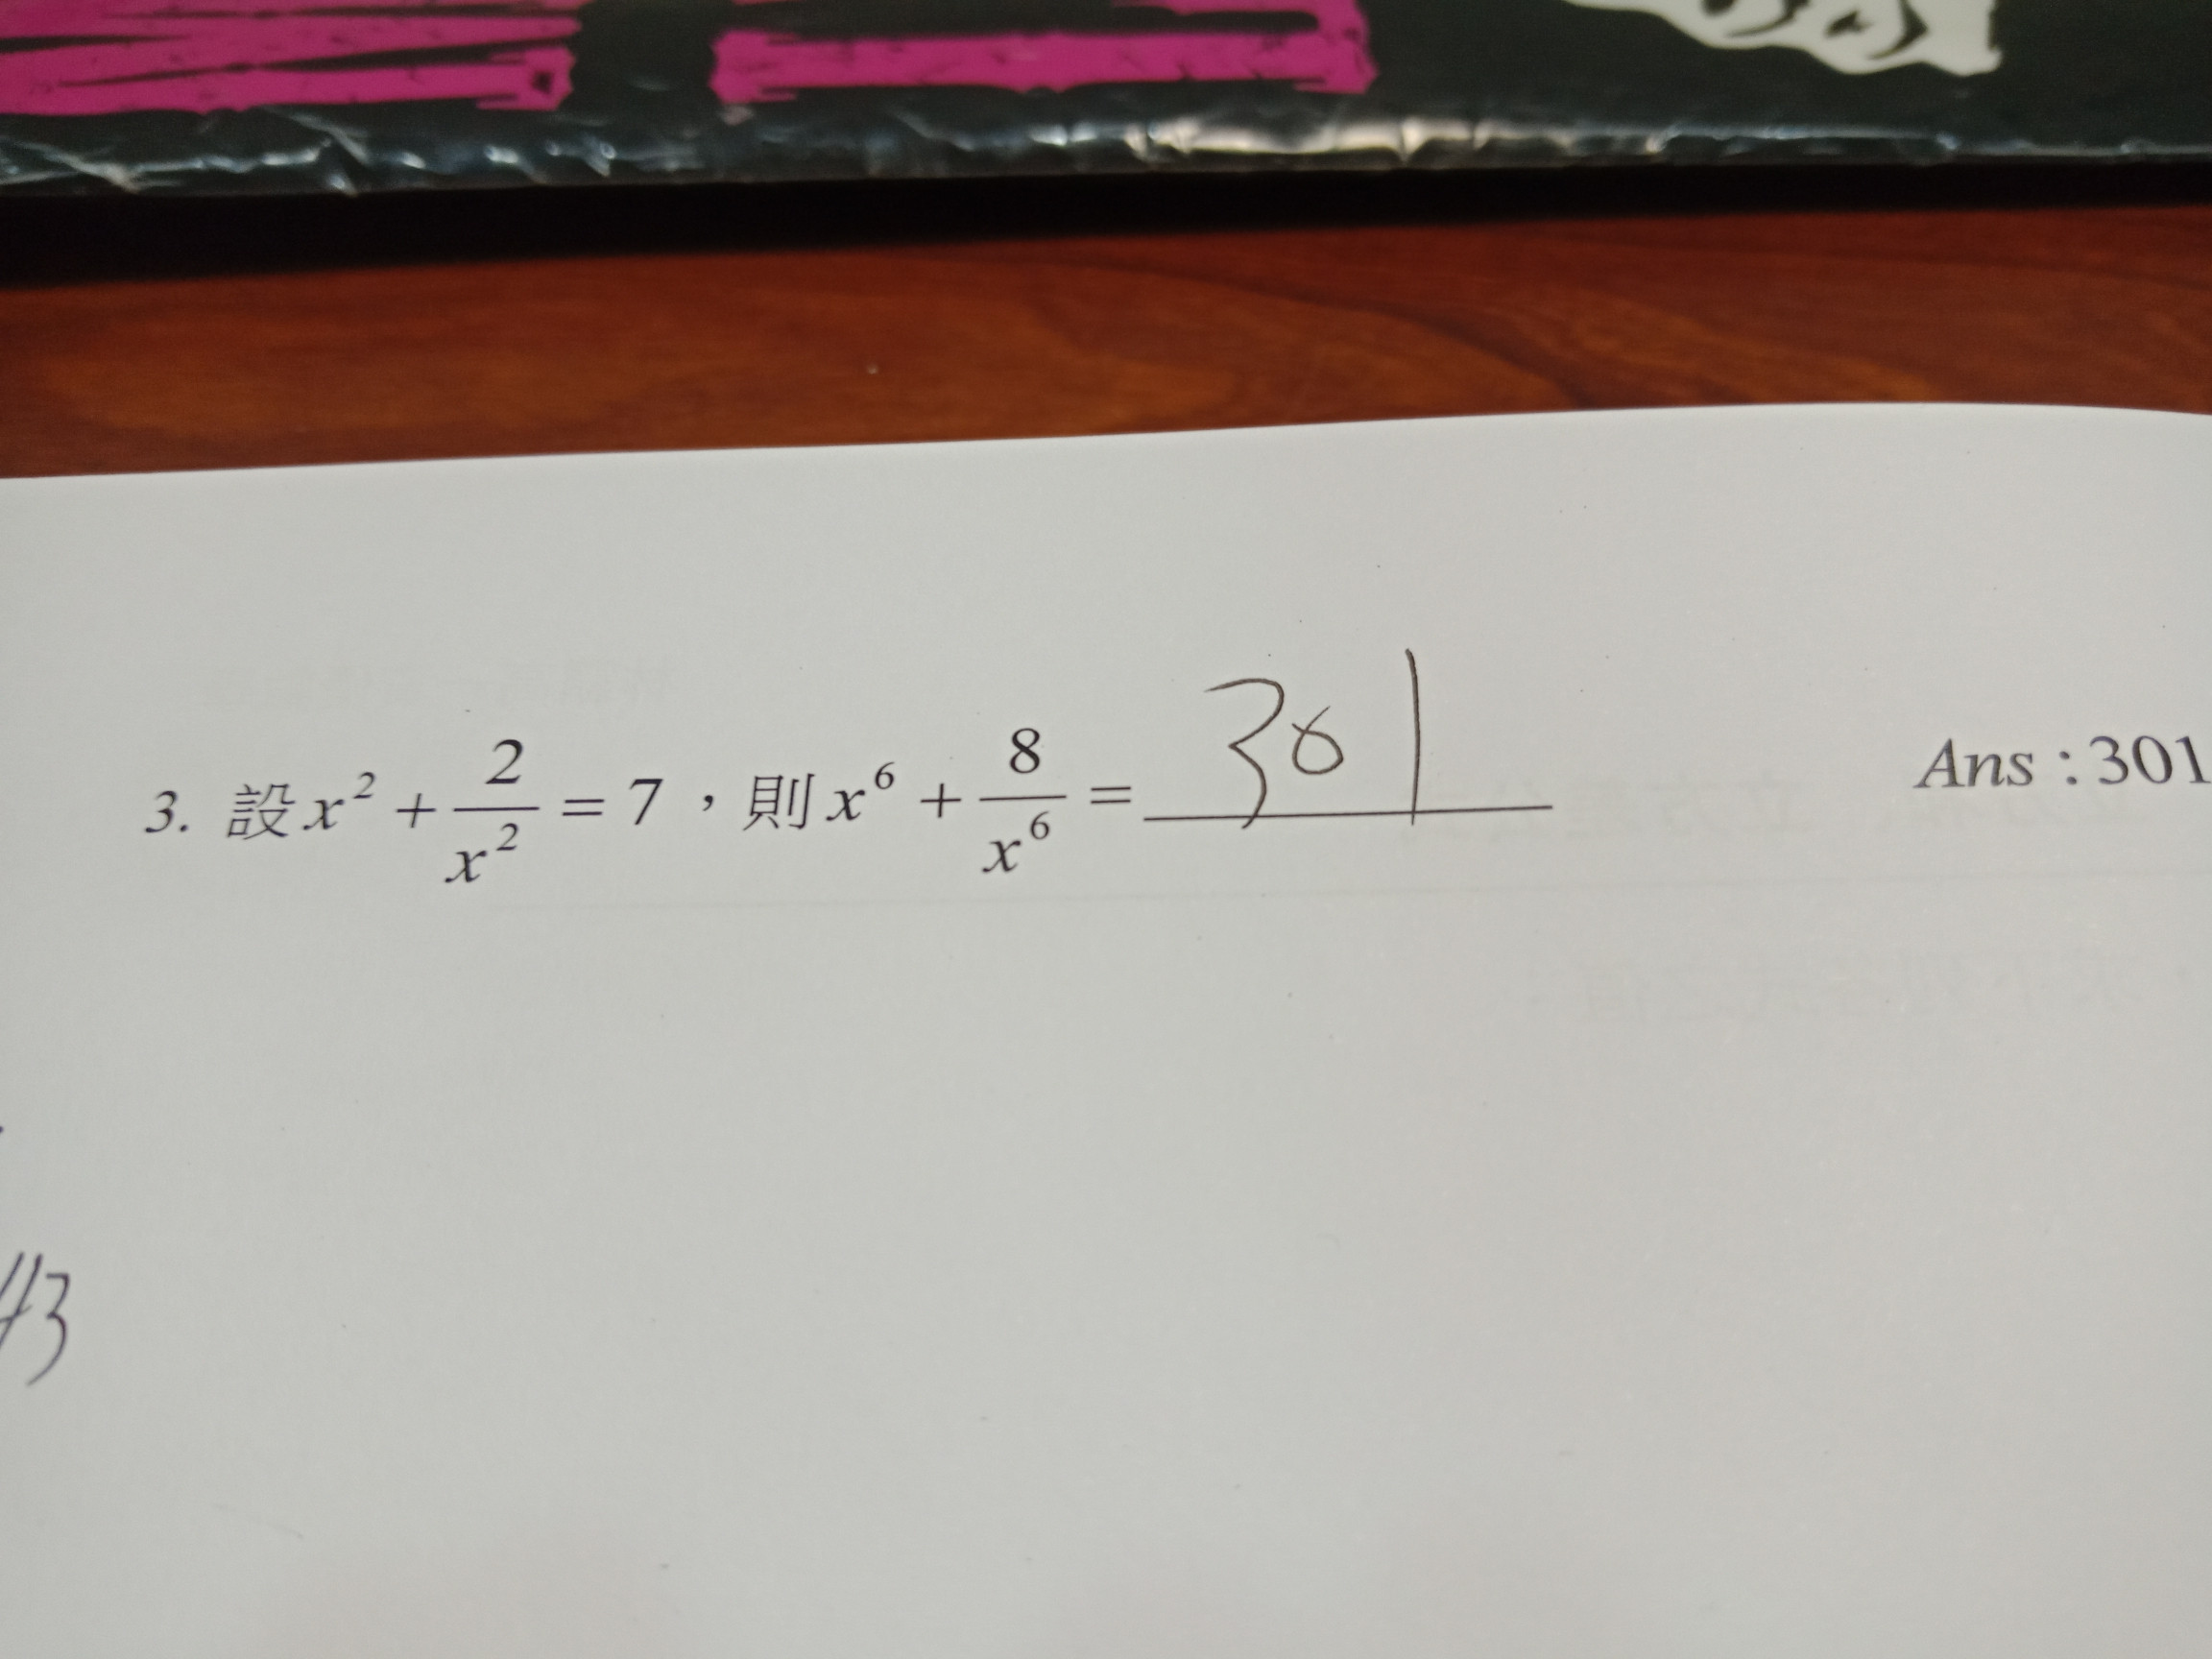 3. 設 x² + 2/x² = 7，則 x⁶ + 8/x⁶ = 301 Ans : 301
#3